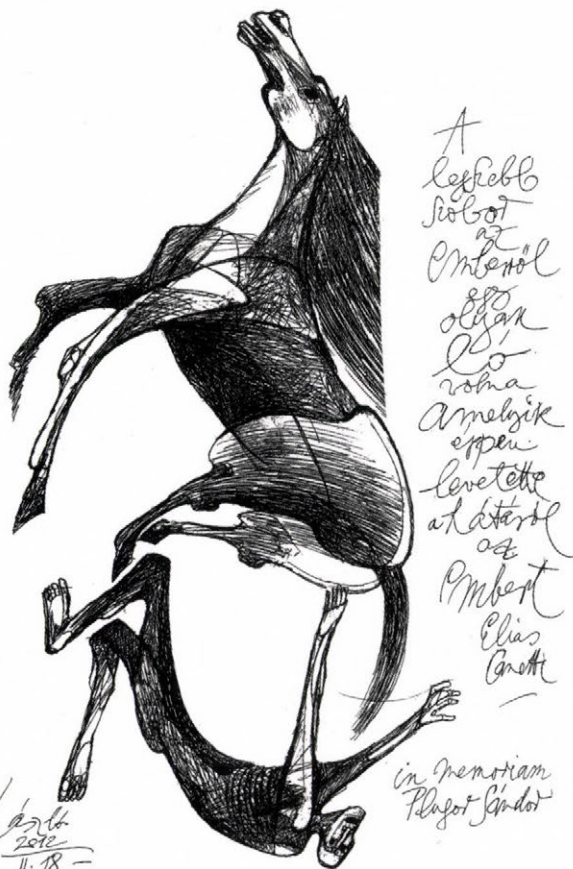 A
legszebb
szobor
az
Emberről
egy
olyan
ló
volna
amelyik
éppen
levetette
a hátáról
az
Embert
Elias
Canetti
in memoriam
Plugor Sándor
László
2012
II. 18 –